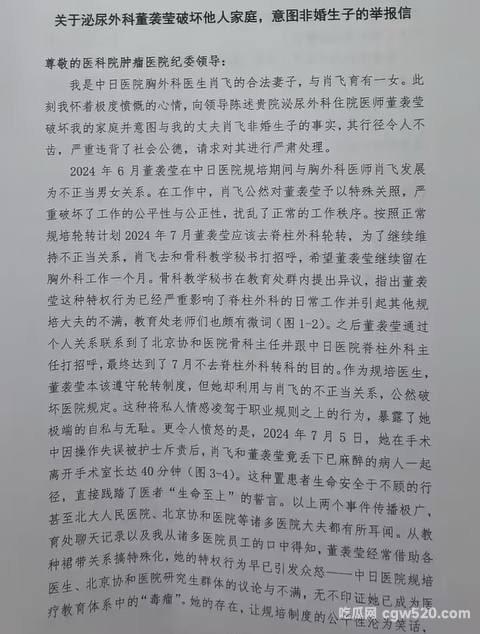 关于泌尿外科董袭莹破坏他人家庭，意图非婚生子的举报信
尊敬的医科院肿瘤医院纪委领导：
我是中日医院胸外科医生肖飞的合法妻子，与肖飞育有一女。此
刻我怀着极度愤慨的心情，向领导陈述贵院泌尿外科住院医师董袭莹
破坏我的家庭并意图与我的丈夫肖飞非婚生子的事实，其行径令人不
齿，严重违背了社会公德，请求对其进行严肃处理。
2024 年 6 月董袭莹在中日医院规培期间与胸外科医师肖飞发展
为不正当男女关系。在工作中，肖飞公然对董袭莹予以特殊关照，严
重破坏了工作的公平性与公正性，扰乱了正常的工作秩序。按照正常
规培轮转计划 2024 年 7 月董袭莹应该去脊柱外科轮转，为了继续维
持不正当关系，肖飞去和骨科教学秘书打招呼，希望董袭莹继续留在
胸外科工作一个月。骨科教学秘书在教育处群内提出异议，指出董袭
莹这种特权行为已经严重影响了脊柱外科的日常工作并引起其他规
培大夫的不满，教育处老师们也颇有微词（图 1-2）。之后董袭莹通过
个人关系联系到了北京协和医院骨科主任并跟中日医院脊柱外科主
任打招呼，最终达到了 7 月不去脊柱外科转科的目的。作为规培医生，
董袭莹本该遵守轮转制度，但她却利用与肖飞的不正当关系，公然破
坏医院规定。这种将私人情感凌驾于职业规则之上的行为，暴露了她
极端的自私与无耻。更令人愤怒的是，2024 年 7 月 5 日，她在手术
中因操作失误被护士斥责后，肖飞和董袭莹竟丢下已麻醉的病人一起
离开手术室长达 40 分钟（图 3-4）。这种置患者生命安全于不顾的行
径，直接践踏了医者“生命至上”的誓言。以上两个事件传播极广，
甚至北大人民医院、北京协和医院等诸多医院大夫都有所耳闻。从教
育处聊天记录以及我从诸多医院员工的口中得知，董袭莹经常借助各
种裙带关系搞特殊化，她的特权行为早已引发众怒——中日医院规培
医生、北京协和医院研究生群体的议论与不满，无不印证她已成为医
疗教育体系中的“毒瘤”。她的存在，让规培制度的公平性沦为笑话，
吃瓜网 cgw520.com